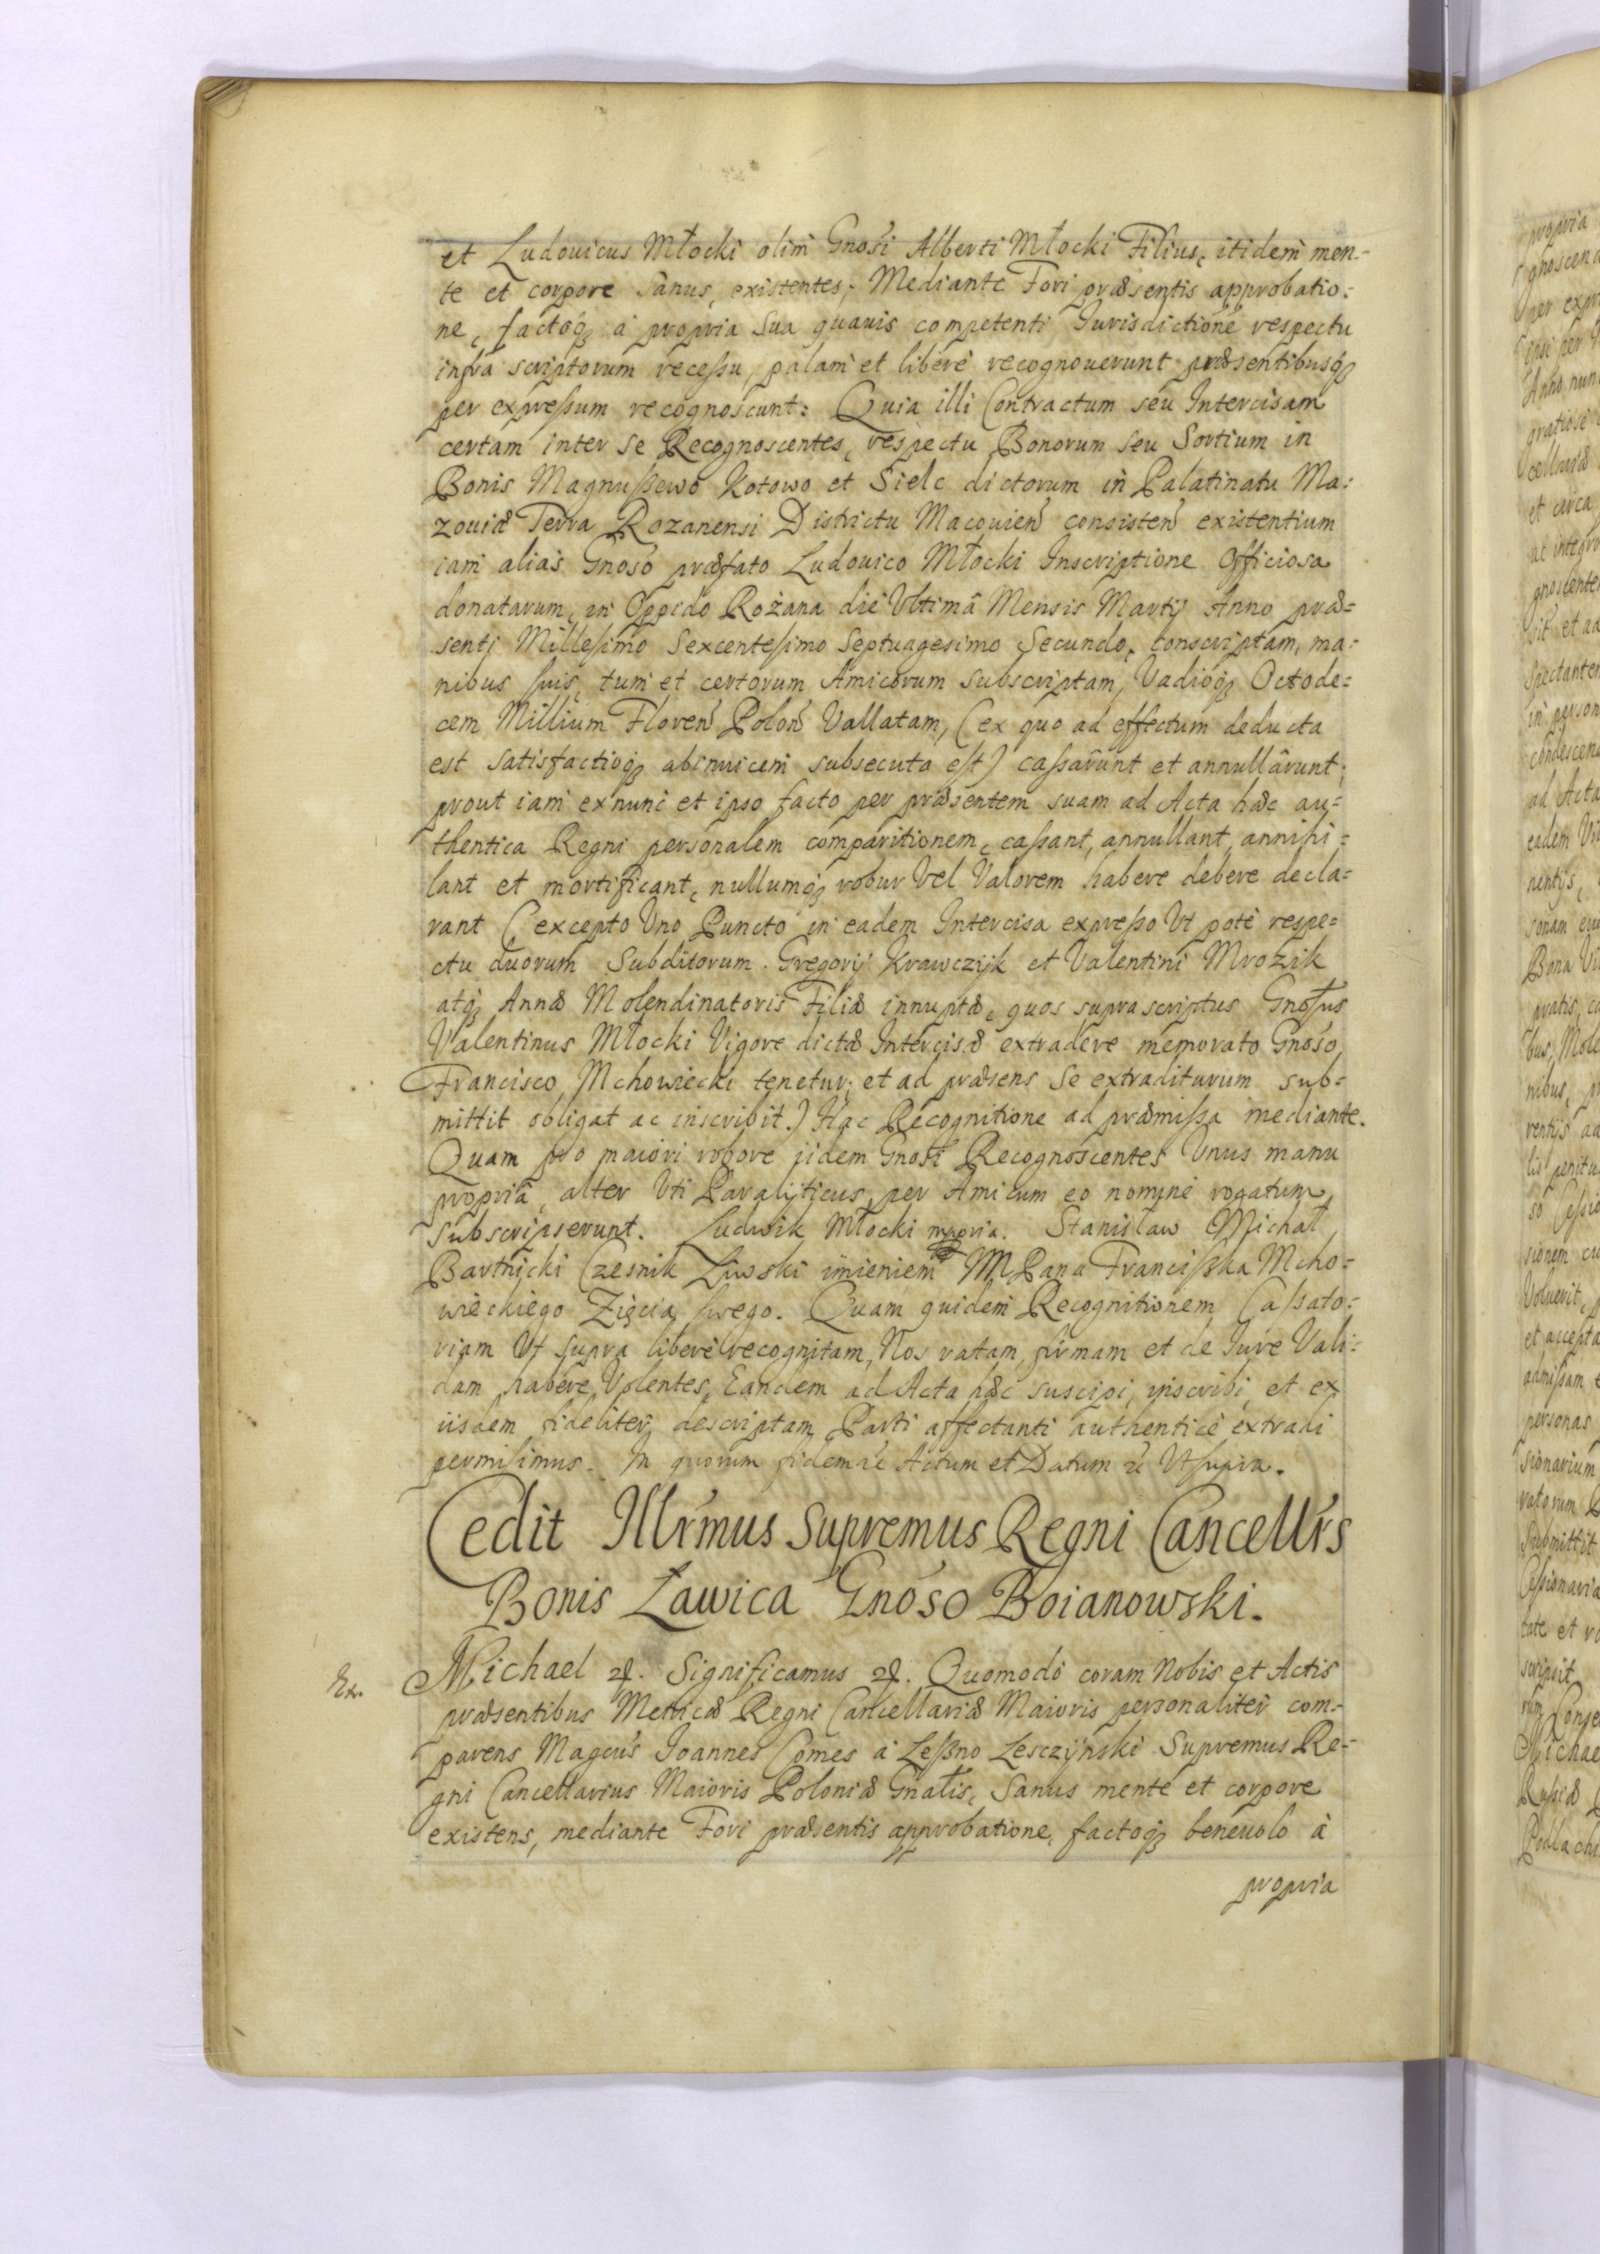 et Ludouicus Młocki olim Gnosi Alberti Młocki Filius, itidem men-
te et corpore sanus, existentes, Mediante Fori præsentis approbatio=
ne, factoq; à propria sua quauis competenti Iurisdictione respectu
infra scriptorum recessu, palam et liberè recognouerunt præsentibusq;
per expreßum recognoscunt: Quia illi Contractum seu Intercisam
certam inter se Recognoscentes, respectu Bonorum seu Sortium in
Bonis Magnußewo Kotowo et Sielc dictorum in Palatinatu Ma=
zouiæ Terra Rozanensi Districtu Macouien consisten existentium
iam aliàs Gnoso præfato Ludouico Młocki Inscriptione Officiosa
donatarum, in Oppido Rożana die Vltimâ Mensis Martij Anno præ=
senti Millesimo Sexcentesimo Septuagesimo Secundo, conscriptam, ma=
nibus suis, tum et certorum Amicorum subscriptam, Vadioq; Octode=
cem Millium Floren Polon Vallatam, (ex quo ad effectum deducta
est satisfactioq; abinuicem subsecuta est) caßârunt et annullârunt;
prout iam exnunc et ipso facto per præsentem suam ad Acta hæc au=
thentica Regni personalem comparitionem, caßant, annullant, annihi=
lant et mortificant, nullumq; robur Vel Valorem habere debere decla=
rant (excepto Vno Puncto in eadem Intercisa expreßo Vt potè respe=
ctu duorum Subditorum Gregorij Krawczÿk et Valentini Mrozik
atq; Annæ Molendinatoris Filiæ innuptæ, quos suprascriptus Gnosus
Valentinus Młocki Vigore dictæ Intercisæ extradere memorato Gnoso
Francisco Mchowiecki tenetur, et ad præsens se extraditurum sub=
mittit obligat ac inscribit.) Hac Recognitione ad præmißa mediante.
Quam pro maiori robore iidem Gnosi Recognoscentes Vnus manu
propriâ, alter Vti Paralÿticus, per Amicum eo nomine rogatum
subscripserunt. Ludwik Młocki mppria. Stanisław Michał
Bartnicki Czesnik Liwski imieniem JM Pana Francißka Mcho=
wieckiego Zięcia swego. Quam quidem Recognitionem Caßato=
riam Vt supra liberè recognitam, Nos ratam, firmam et de Iure Vali=
dam habere Volentes, Eandem ad Acta hæc suscipi, inscribi, et ex
iisdem fideliter descriptam Parti affectanti authenticè extradi
permisimus. In quorum fidem &c Actum et Datum &c Vt supra.
Cedit Illrmus Supremus Regni Cancellrs
Bonis Ławica Gnoso Boianowski.
Ex. Michael &. Significamus &. Quomodo coram Nobis et Actis
præsentibus Metricæ Regni Cancellariæ Maioris personaliter com-
parens Magcus Ioannes Comes à Leßno Lesczÿnski Supremus Re-
gni Cancellarius Maioris Poloniæ Gnalis, Sanus mente et corpore
existens, mediante Fori præsentis approbatione, factoq; beneuolo à
propria